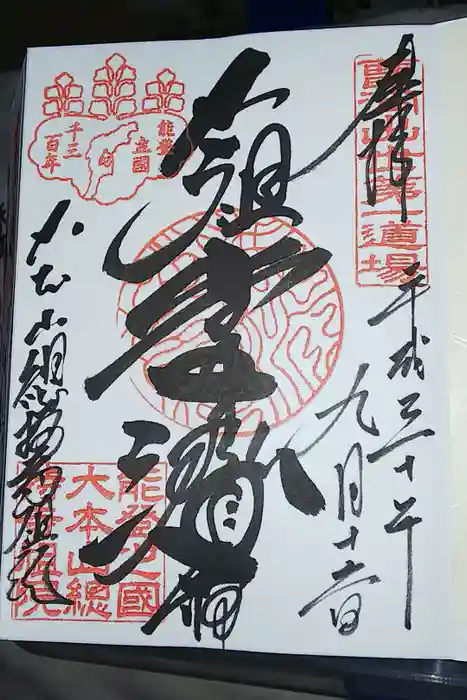 奉拝
曹洞出世第一道場
平成三十年
九月十六日
能登
立國
千三
百年
大本山總持寺祖院
能登之國
大本山總
持寺祖院